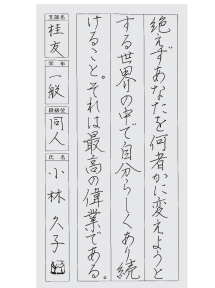 絶えずあなたを何者かに変えようと
する世界の中で自分らしくあり続
けること。それは最高の偉業である。
支部名
桂友
学年
一般
段級位
同人
氏名
小林久子